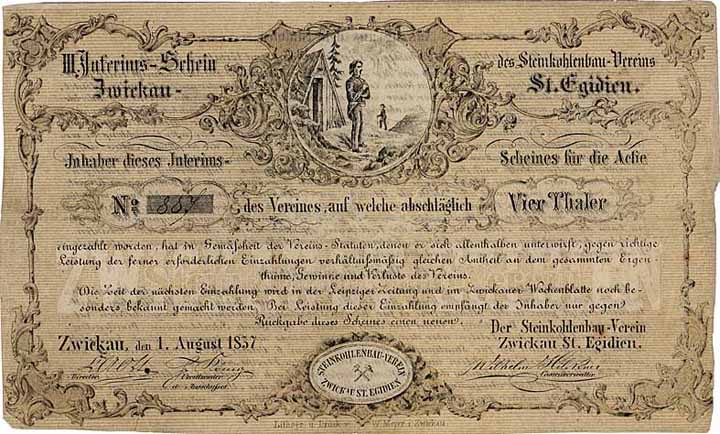 III. Interims-Schein des Steinkohlenbau-Vereins
Zwickau- St. Egidien.
Inhaber dieses Interims- Scheines für die Actie
No: 887 des Vereines, auf welche abschläglich Vier Thaler
eingezahlt worden, hat in Gemäsheit der Vereins-Statuten, denen er sich allenthalben unterwirft, gegen richtige
Leistung der ferner erforderlichen Einzahlungen verhältnißmäßig gleichen Antheil an dem gesammten Eigen-
thume, Gewinne und Verluste des Vereins.
Die Zeit der nächsten Einzahlung wird in der Leipziger Zeitung und im Zwickauer Wochenblatte noch be-
sonders bekannt gemacht werden. Bei Leistung dieser Einzahlung empfängt der Inhaber nur gegen
Rückgabe dieses Scheines einen neuen.
Zwickau, den 1. August 1857 Der Steinkohlenbau-Verein
Zwickau St. Egidien.
Director. Vorsitzender
d. Ausschusses
STEINKOHLENBAU-VEREIN
ZWICKAU ST. EGIDIEN
Lithogr. u. Druck v. W. Meyer i. Zwickau.